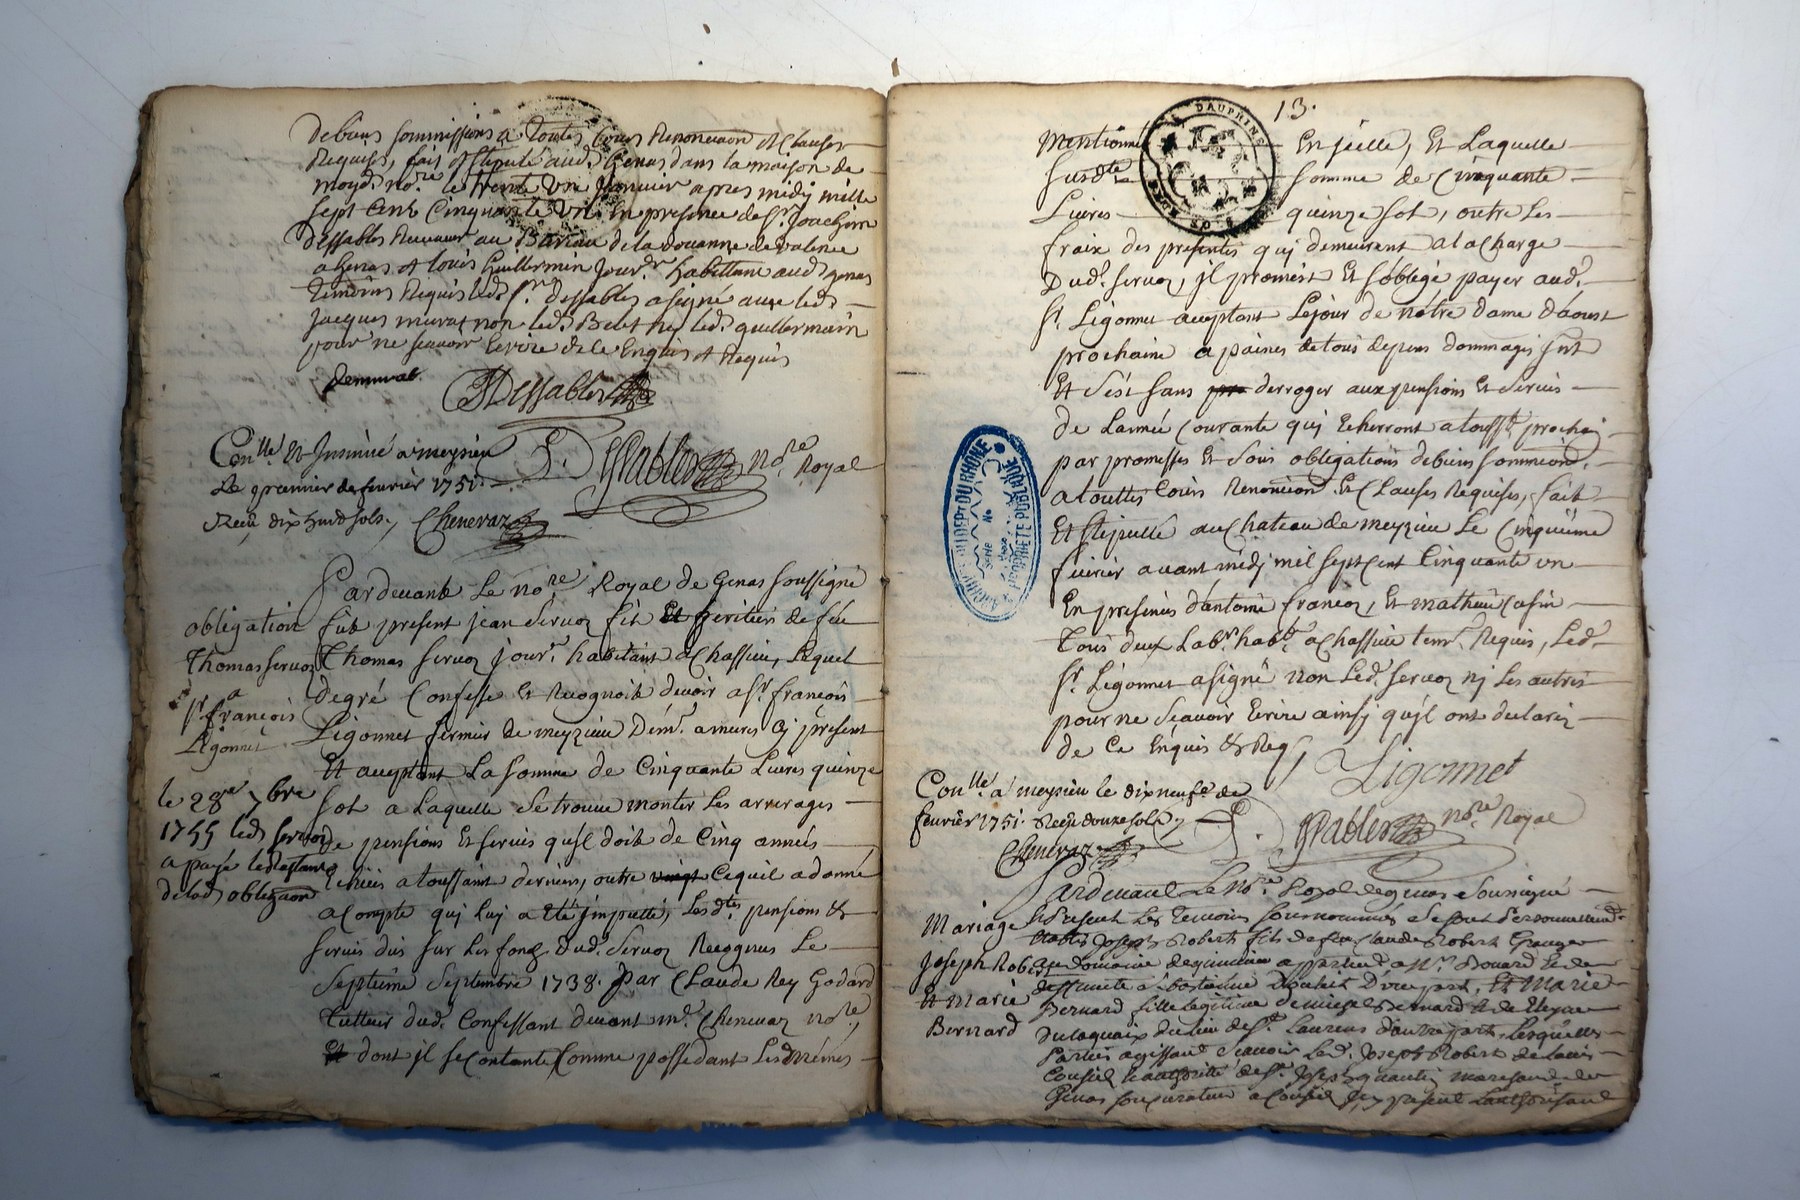 debiens soummissions a toutes Cours Renonciaõn et Clauses
Requises, fait et stipullé aud. Genas dans la maison de
moyd. no.re le trente un Janvier apres midy mille
sept Cent Cinquante un En presence de Sr. Joachim
Dessables Receveur au Bureau de la douanne de valence
a Genas et louis Guillermin Jour.r habittant aud. genas
temoins Requis led. Sr. dessables a signé avec led.
Jacques murat non led. ny led. guillermin
pour ne scavoir Ecrire de ce Enquis et Requis
Jemurat. JDessables
Con.llé Et Insinué a meysieu
Le premier de fevrier 1751.
Reçu dix huit sols. Chenevaz
Dessables no.re Royal
Pardevant Le no.re Royal de Genas soussigné
obligation
fut present jean Servoz fils Et heritier de feu
Thomas servoz
Thomas servoz jour.r habitant a Chassieu, Lequel
a
degré Confesse Et Recognoit devoir a Sr. françois
sr. françois
Ligonnet
Ligonnet fermier de meyzieu Dem.t a mures Cy present
Et aceptant La somme de Cinquante Livres quinze
le 28e 7bre
sol a Laquelle se trouve monter Les arrerages
1755 led. servoz
de pensions Et servis qu'jl doit de Cinq années
a payé le Restant
Echües a toussaint dernier, outre vingt Cequil a donné
de lad. obligaõn
a Compte quj luy a Eté jmputté, Lesd.tes pensions &
servis dûs sur Les fonds Dud. Servoz Recognus Le
septieme septembre 1738. par Claude Rey Godard
Tutteur dud. Confessant devant m.e Chenevaz no.re,
Et dont jl se contante Comme possedant Lesd. mémes
13.
DAUPHINE
Mentionnés En jcelle, Et Laquelle
susd.te somme de Cinquante
Livres quinze sol, outre Les
fraix des presentes quj demeurent a la Charge
Dud. servoz, jl promêst Et s'oblige payer aud.
Sr. Ligonnet aceptant Lejour de nôtre dame d'aoust
prochaine a paines de tous depens dommages jnt
Et C'ést sans pre derroger aux pensions Et servis
de Lannée Courante quj Echerront a touss.t prochai
par promesses Et sous obligations de biens soumission
a touttes Cours Renonciaõn Et Clauses Requises, fait
Et stipullé au Chateau de meyzieu Le Cinquieme
fevrier avant midj mil sept Cent Cinquante un
En presence d'antoine françoz, Et mathieu Cafin
Tous deux Lab.rs hab.ts a Chassieu tem.s Requis, Led.
Sr. Ligonnet a signé non Led. servoz nj Les autres
pour ne Scavoir Ecrire ainsj qu'jl ont declaré
de Ce Enquis & Req.s Ligonnet
ARCHIVES DU DEPT DU RHONE
Serie No
PROPRIETE PUBLIQUE
Con.llé a meysieu le dixneuf.e de
fevrier 1751. Reçu douze sols
Chenevaz
Dessables no.re Royal
Pardevant Le No.re Royal de genas soussigné
& Present Les Temoins sousnommés se sont Personnellem.t
Mariage
Etablis Joseph Robert fils de feu Claude Robert Granger
Joseph Robert
au domaine de appartient a Mr. Le de
Et Marie
Et Marie
Bernard
Bernard fille legitime de Bernard & de
du lieu de St. Laurens d'autre part, Lesquelles
Parties agissant Scavoir Led. Joseph Robert de Lavis
Conseil & authorité de Sr. Joseph quantin marchand de
Genas son curateur a Conseil Cy present L'authorisant